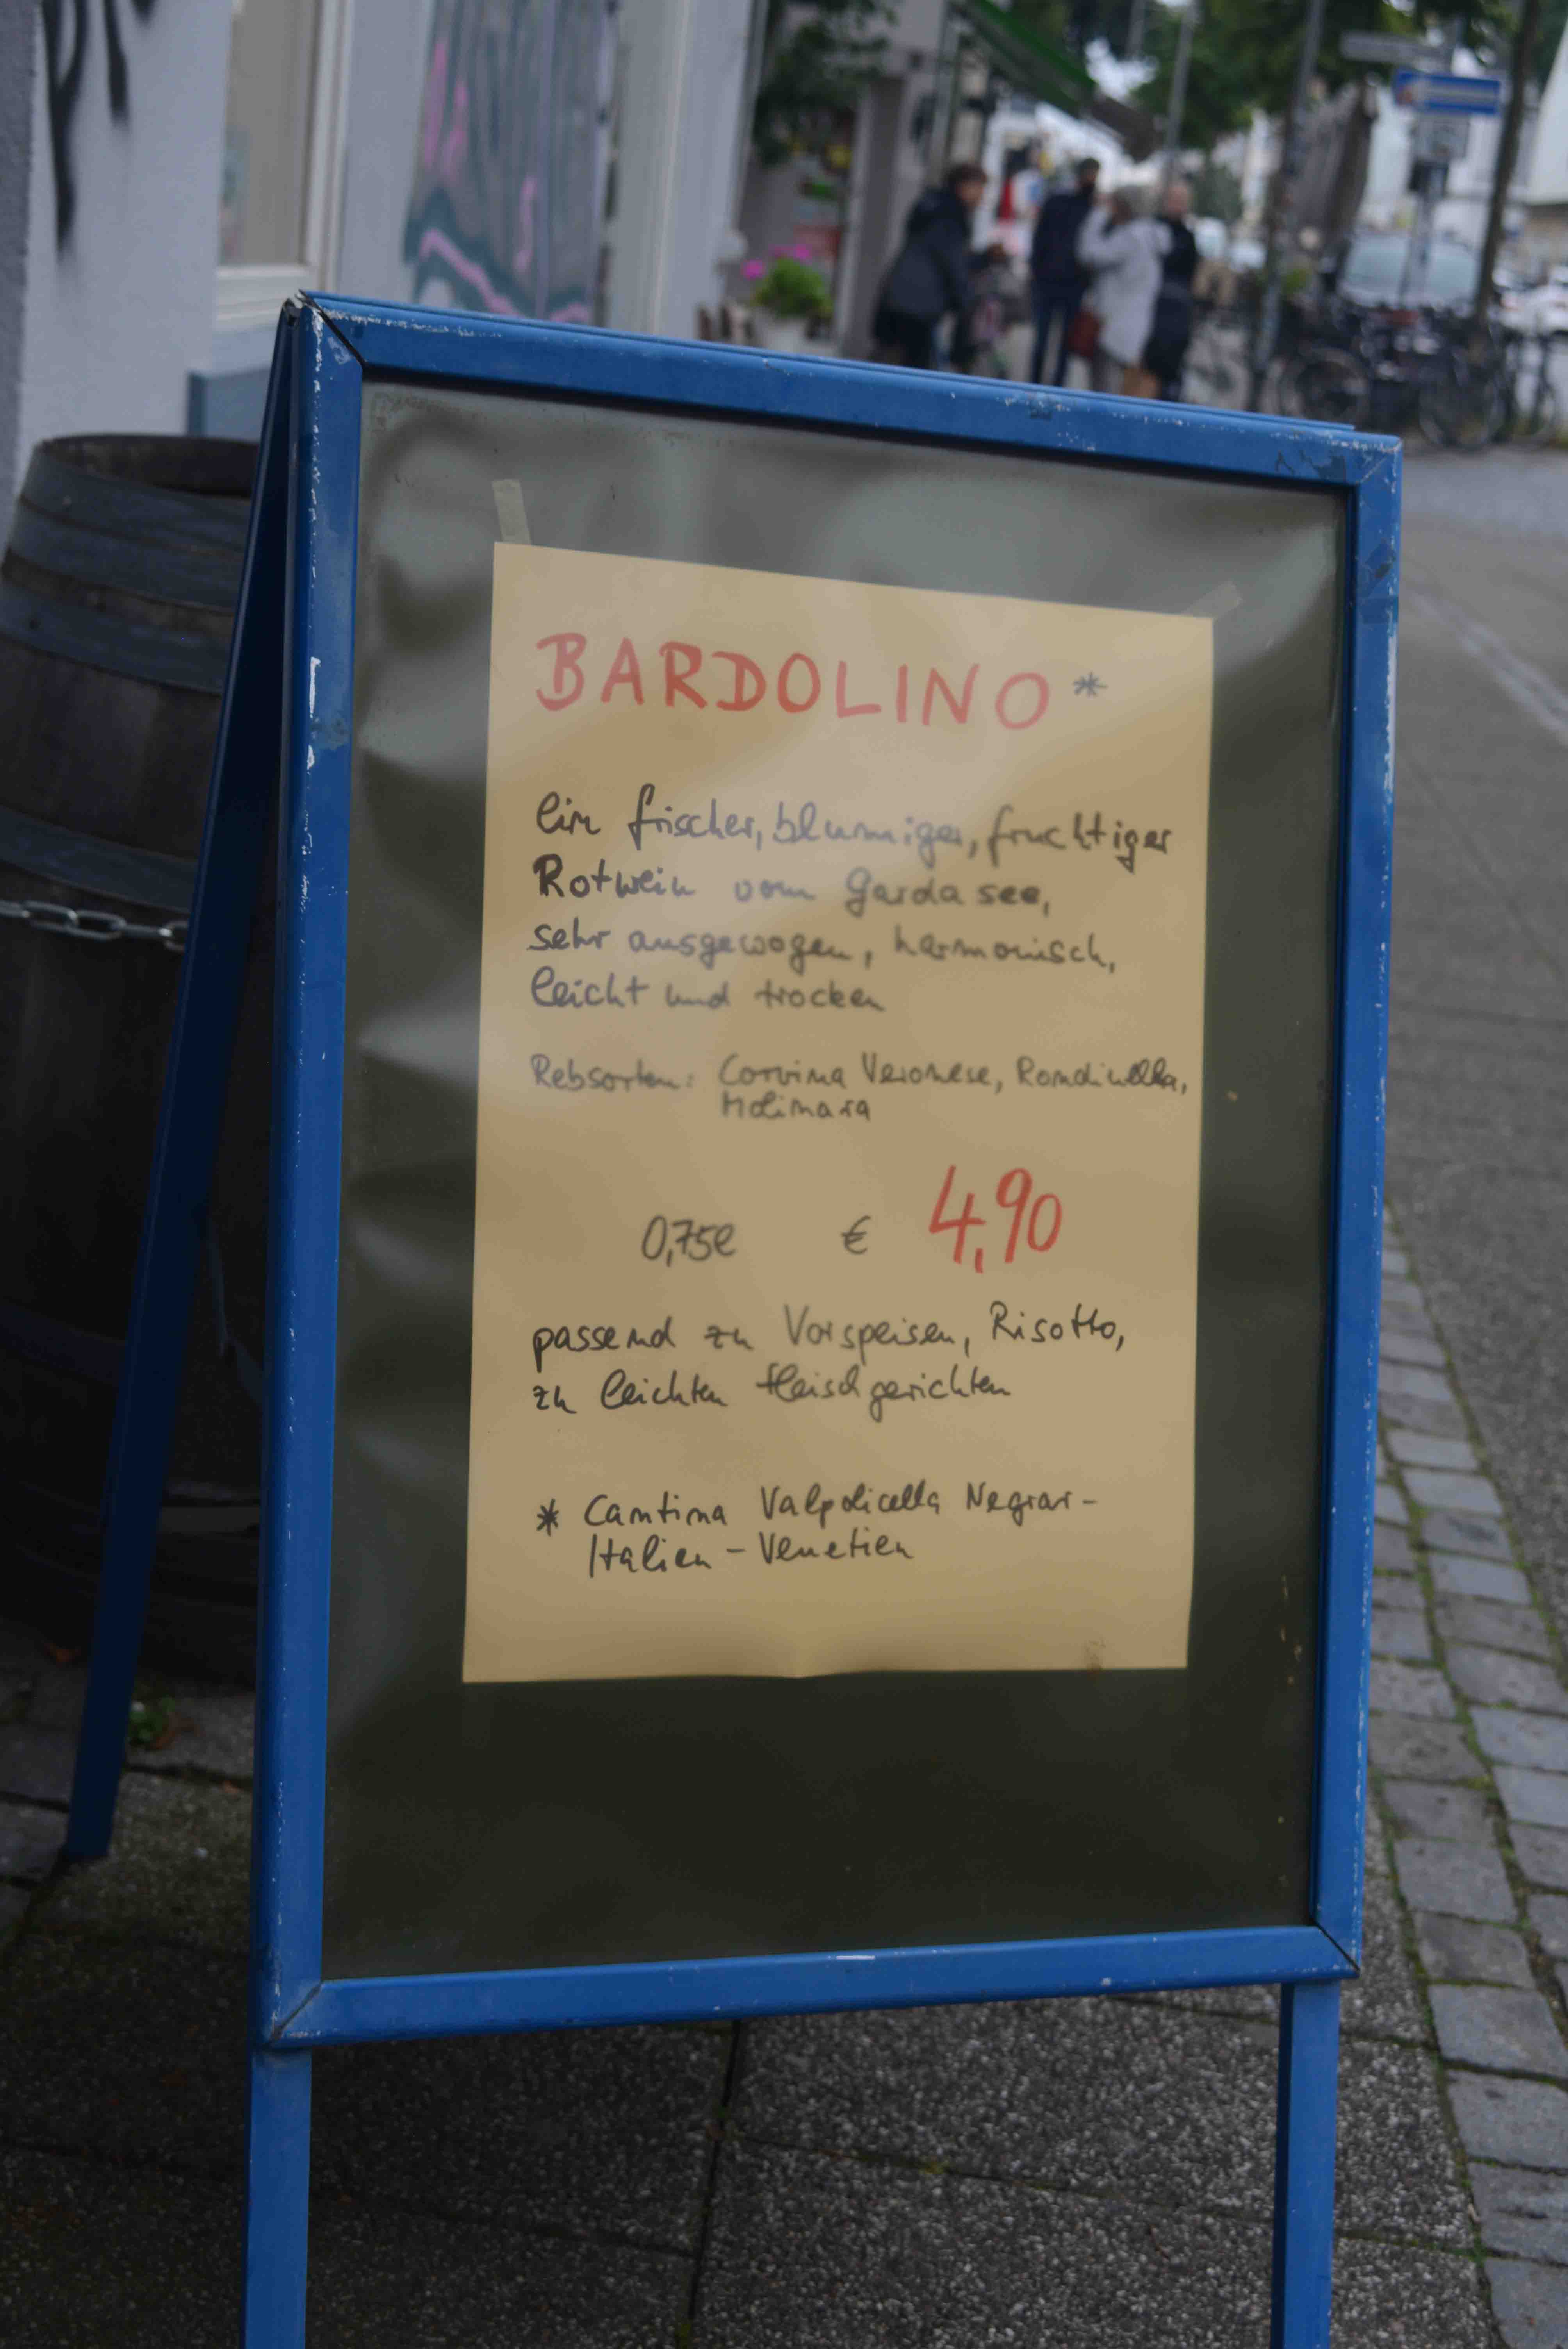 BARDOLINO *
Ein frischer, blumiger, fruchtiger
Rotwein vom Gardasee,
sehr ausgewogen, harmonisch,
leicht und trocken
Rebsorten: Corvina Veronese, Rondinella,
Molinara
0,75l € 4,90
passend zu Vorspeisen, Risotto,
zu leichten Fleischgerichten
* Cantina Valpolicella Negrar-
Italien - Venetien